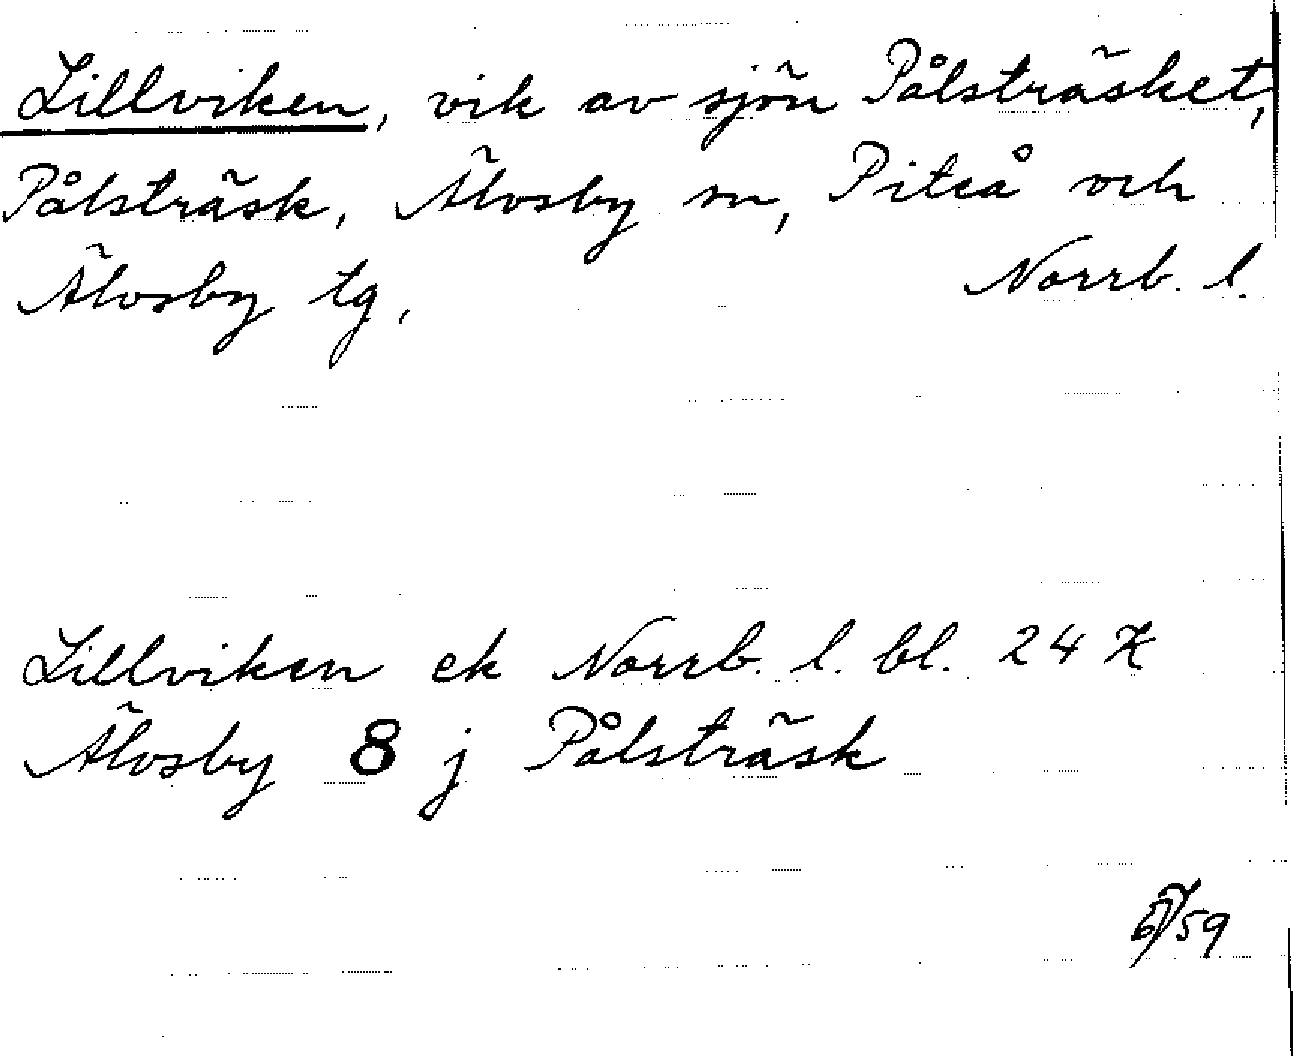 Lillviken, vik av sjön Pålsträsket,
Pålsträsk, Älvsby sn, Piteå och
Älvsby tg, Norrb. l.
Lillviken ek Norrb. l. bl. 24 K
Älvsby 8 j Pålsträsk
59